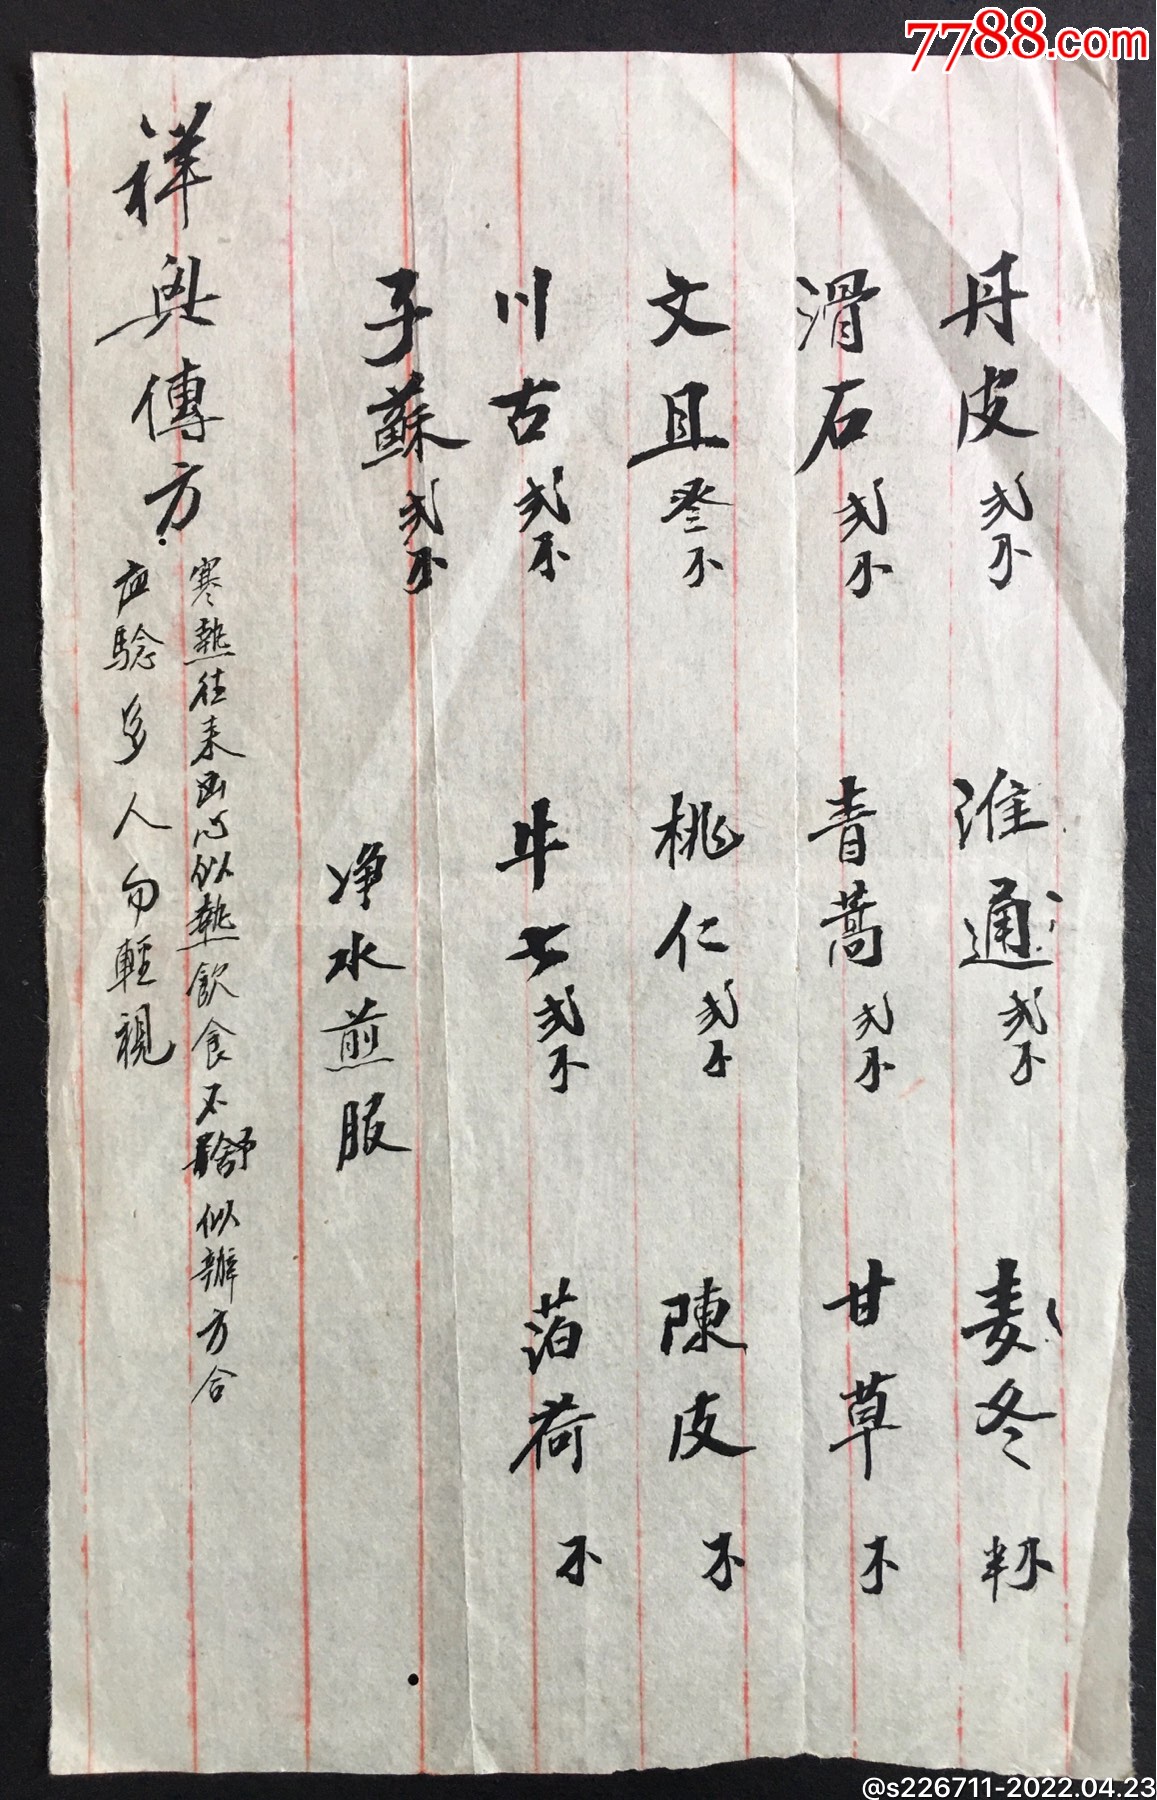 7788.com
丹皮弍不 淮通弍不 麦冬半不
滑石弍不 青蒿弍不 甘草不
文且叁不 桃仁弍不 陳皮不
川古弍不 牛七弍不 泊荷不
子蘇弍不
净水煎服
祥興傳方
寒熱往来凶心似熱飲食不舒似辦方合
应驗多人勿輕視
@s226711-2022.04.23